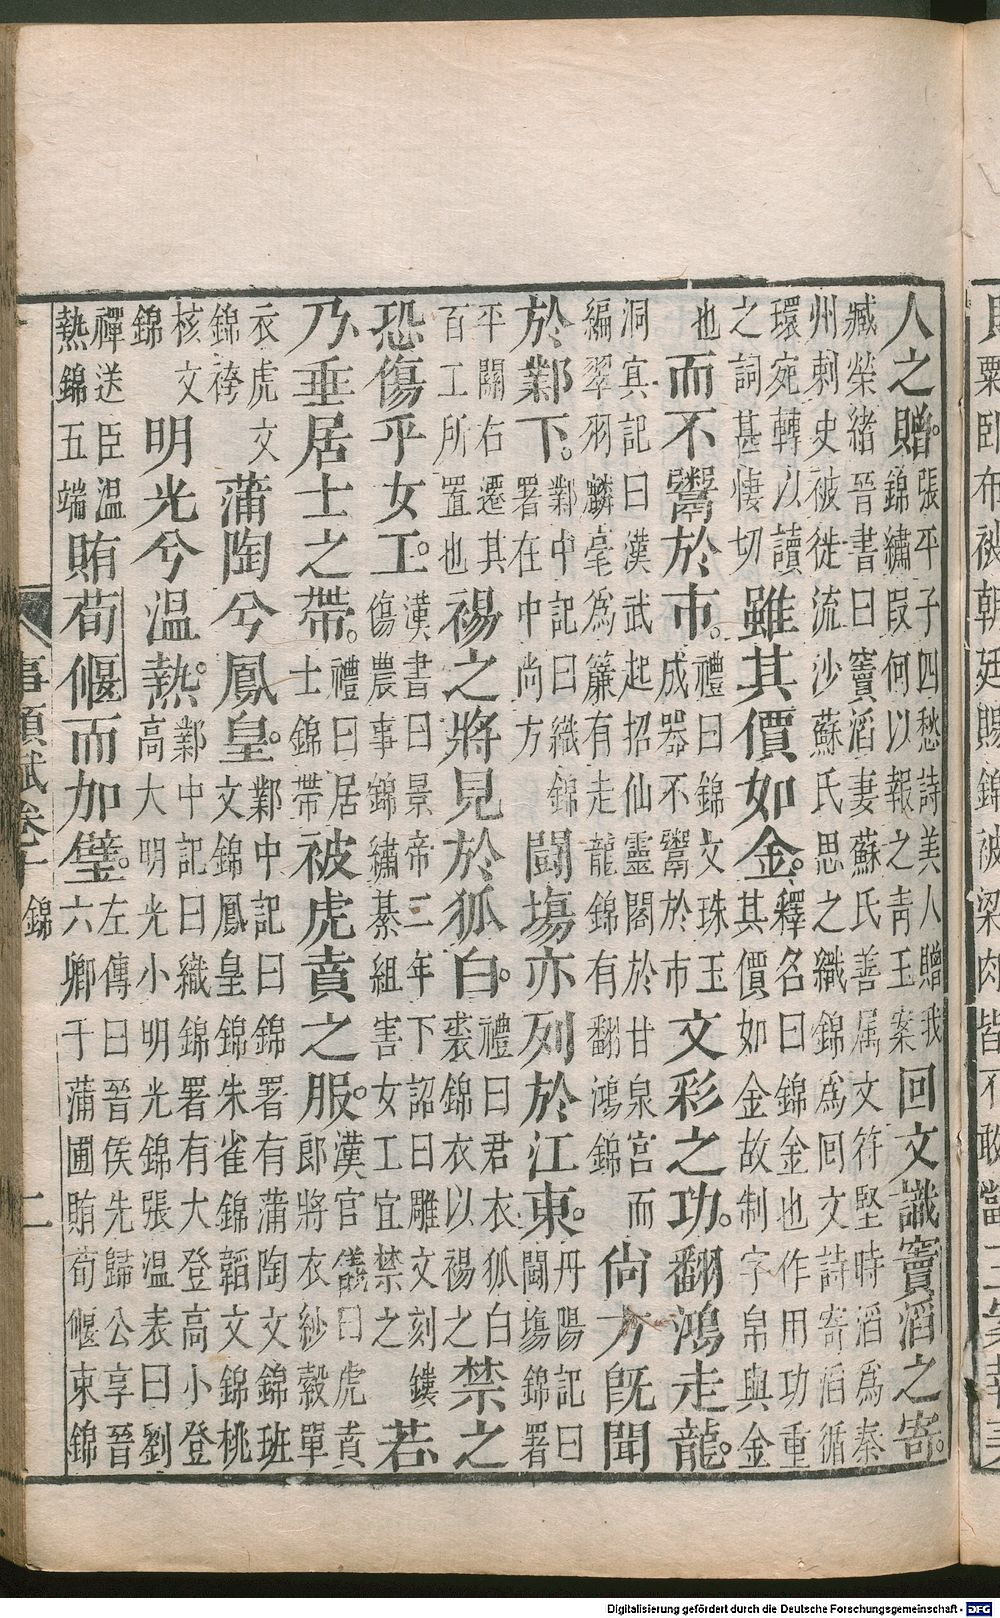 人之贈。張平子四愁詩美人贈我錦繡段何以報之青玉案回文識竇滔之寄。
臧榮緒晉書曰竇滔妻蘇氏善屬文符堅時滔為秦州刺史被徙流沙蘇氏思之織錦為回文詩寄滔循
環宛轉以讀之詞甚悽切雖其價如金。釋名曰錦金也作用功重其價如金故制字帛與金
也而不鬻於市。禮曰錦文珠玉成器不鬻於市文彩之功。翻鴻走龍。
洞冥記曰漢武起招仙靈閣於甘泉宮而編翠羽麟毫為簾有走龍錦有翻鴻錦尚方既聞
於鄴下。鄴中記曰織錦署在中尚方闘塲亦列於江東。丹陽記曰闘塲錦署
平關右遷其百工所置也裼之將見於狐白。禮曰君衣狐白裘錦衣以裼之禁之
恐傷乎女工。漢書曰景帝二年下詔曰雕文刻鏤傷農事錦繡綦組害女工宜禁之若
乃垂居士之帶。禮曰居士錦帶被虎賁之服。漢官儀曰虎賁郎將衣紗縠單
衣虎文錦袴蒲陶兮鳳皇。鄴中記曰錦署有蒲陶文錦班文錦鳳皇錦朱雀錦韜文錦桃
核文錦明光兮温熱。鄴中記曰織錦署有大登高小登高大明光小明光錦張温表曰劉
禪送臣温熱錦五端賄荀偃而加璧。左傳曰晉侯先歸公享晉六卿于蒲圃賄荀偃束錦
事類賦卷十 錦 二
Digitalisierung gefördert durch die Deutsche Forschungsgemeinschaft - DFG